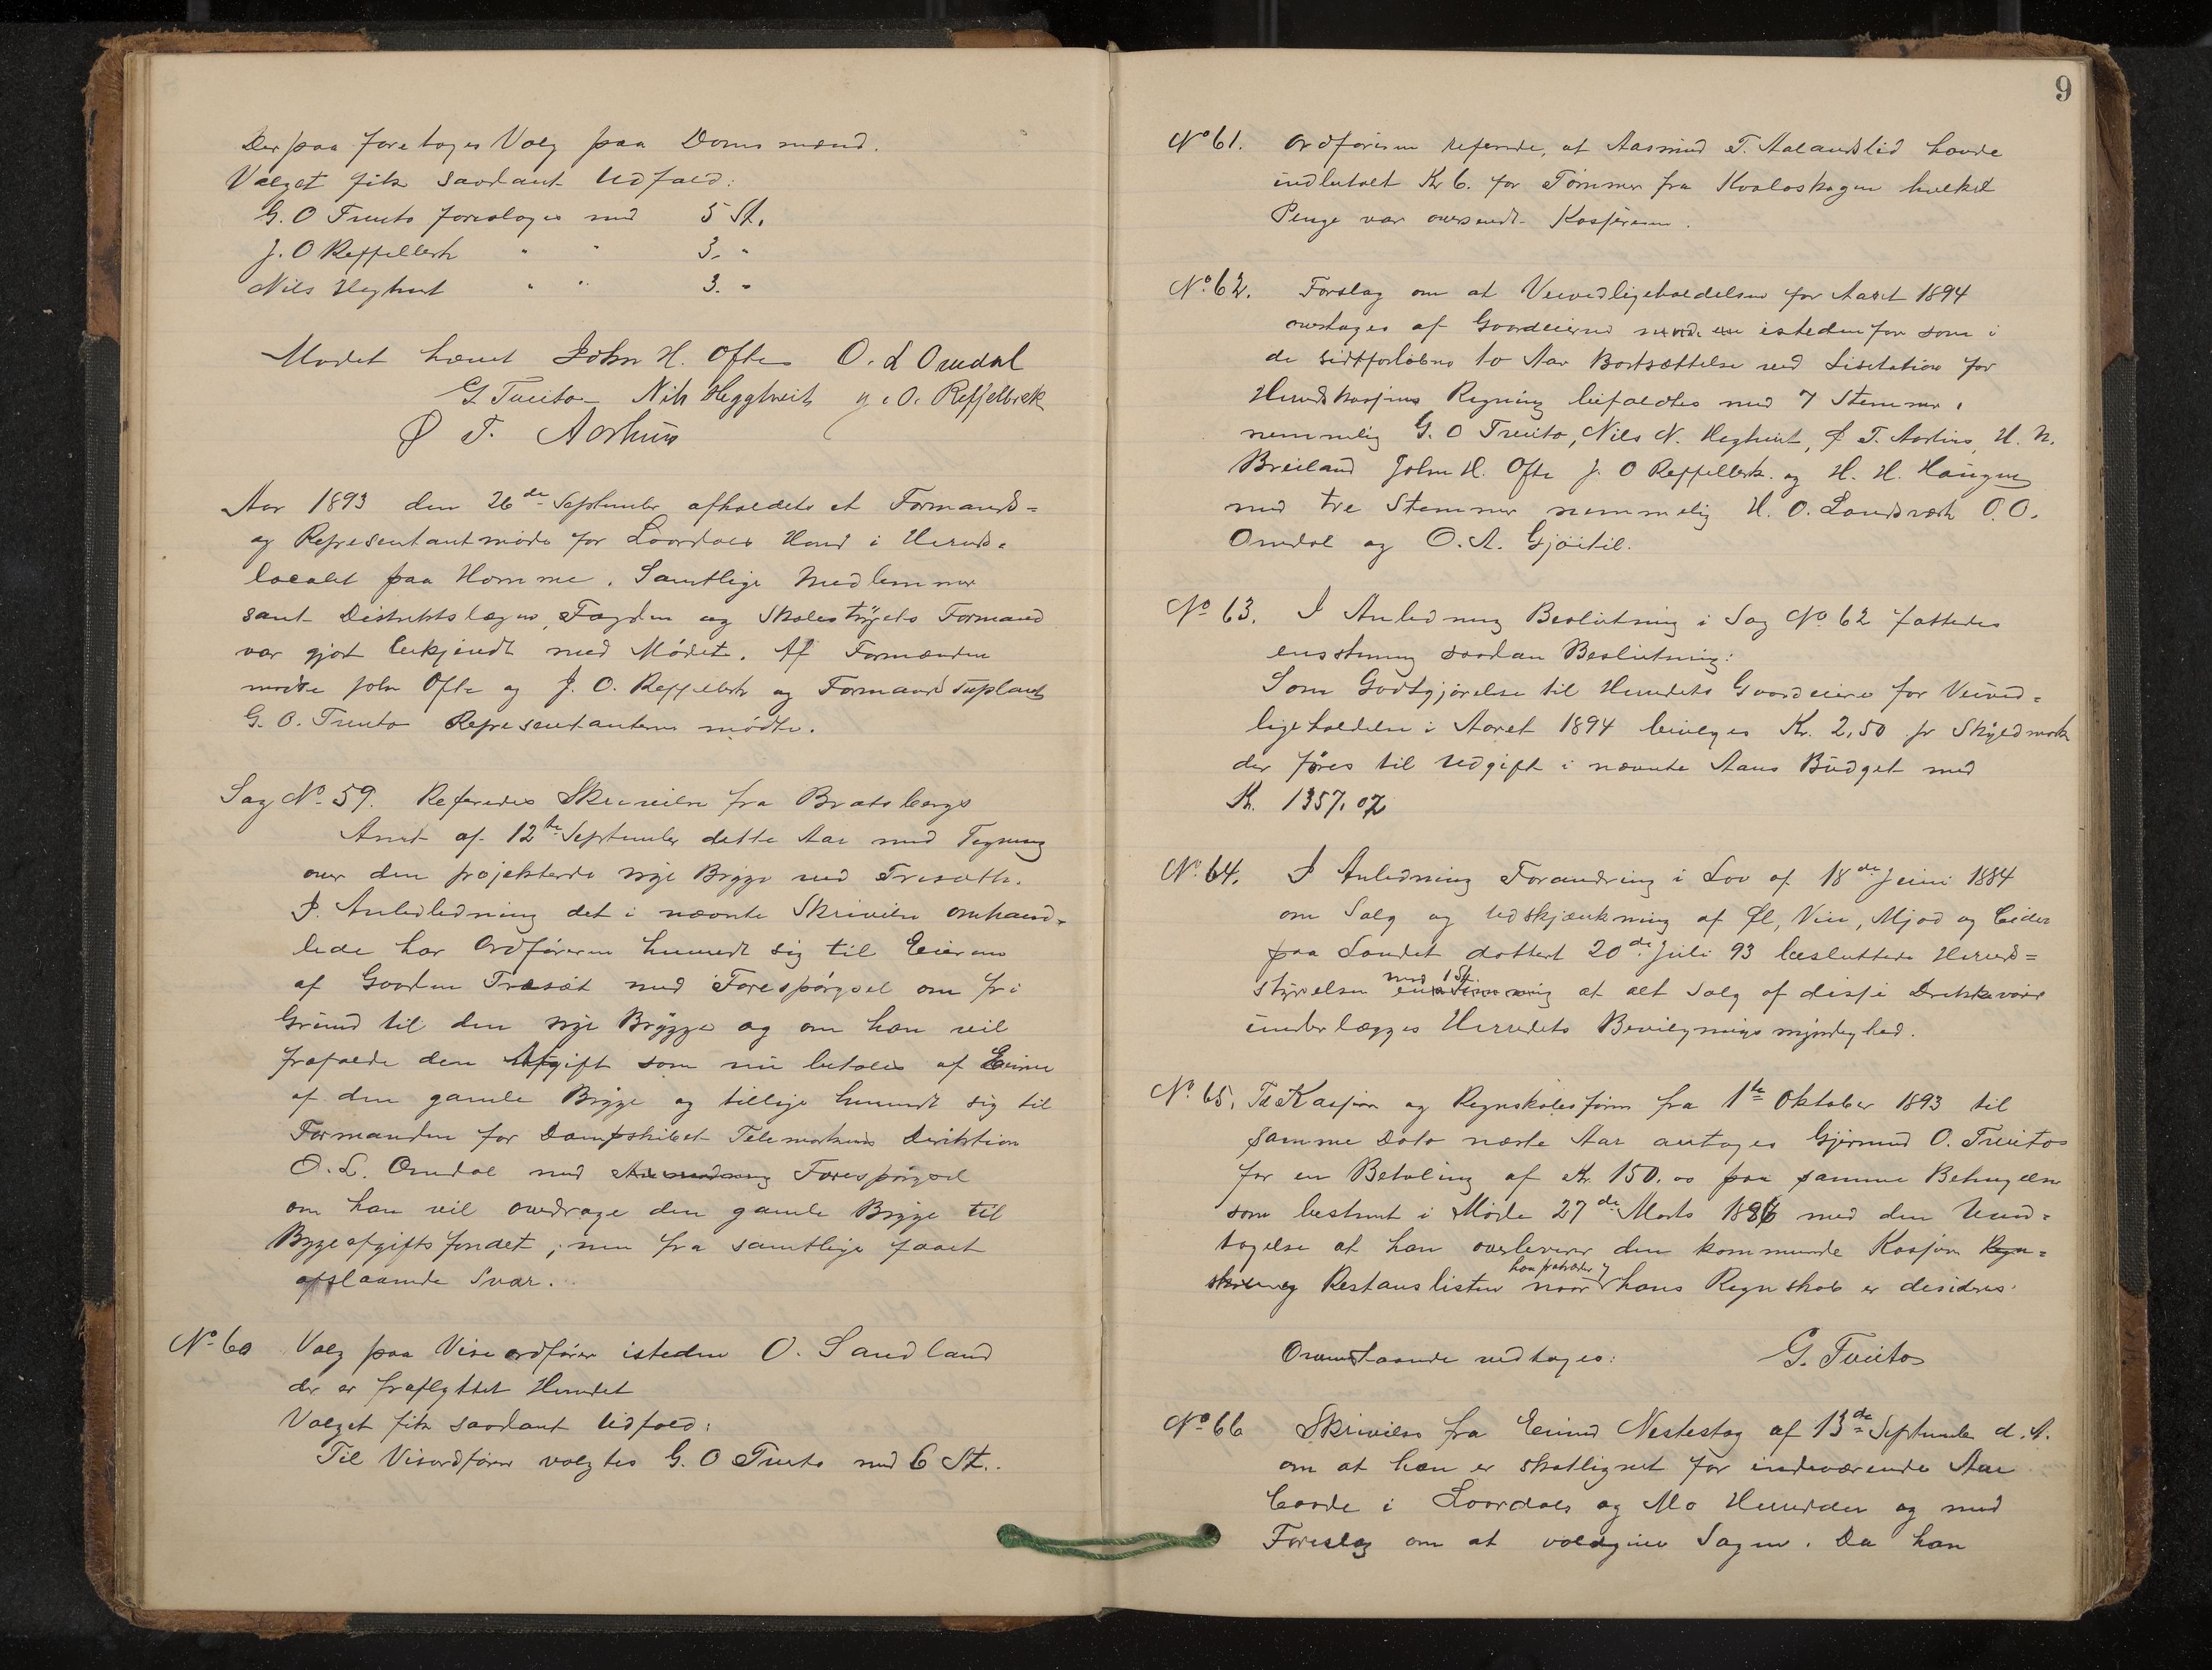 Derpaa foretoges Valg paa Domsmænd.
Valget fik saadant Udfald:
G. O Tveito foresloges med 5 St.
J. O Reffelbek " " 3. "
Nils Hegtveit " " 3. "
Mødet hævet John H. Ofte O. L Omdal
G Tveito Nils Heggtveit J. O. Reffelbæk
Ø T. Aarhus
Aar 1893 den 26de September afholdtes et Formands=
og Representantmøde for Laardals Herred i Herreds=
localet paa Homme. Samtlige Medlemmer
samt Distriktslægen, Fogden og Skolestyrets Formand
var gjort bekjendt med Mødet. Af Formænden
mødte John Ofte og J. O. Reffelbek og Formandssupleant
G. O. Tveito Representanterne mødte.
Sag No 59. Referedes Skrivelse fra Bratsbergs
Amt af 12te September dette Aar med Tegning
over den projekterede nye Brygge ved Trisæth.
I Anledledning det i nævnte Skrivelse omhand=
lede har Ordføreren henvendt sig til Eieren
af Gaarden Træsæt med Forespørgsel om fri
Grund til den nye Brygge og om han vil
frafalde den Afgift som nu betales af Eierne
af den gamle Brygge og tillige henvendt sig til
Formanden for Dampskibet Telemarkens Direktion
O. L. Omdal med Anmodning Forespørgsel
om han vil overdrage den gamle Brygge til
Byggeafgiftsfondet; men fra samtlige faaet
afslaaende Svar.
No 60 Valg paa Viseordfører isteden O. Sandland
der er fraflyttet Herredet
Valget fik saadant Udfald:
Til Viseordfører valgtes G. O Tveito med 6 St.
9
No 61. Ordføreren referede, at Aasmund T. Aalandslid havde
indbetalt Kr 6. for Tømmer fra Kvaloskogen hvilket
Penge var oversendt Kassereren.
No. 62. Forslag om at Veivedligeholdelsen for Aaret 1894
overtages af Gaardeierne istedenfor som i
de sidstforløbne to Aar Bortsættelse ved Lisitation for
Herredskassens Regning bifaldtes med 7 Stemmer,
nemmelig G. O Tveito, Nils N. Hegtveit, Ø T. Aarhus, H. N.
Breiland John H. Ofte J. O Reffelbek og H. H. Haugen
mod tre Stemmer nemmelig H. O. Landsværk O. O.
Omdal og O. A. Gjøitil.
No 63. I Anledning Beslutning i Sag No 62 fattedes
eensstemmig saadan Beslutning:
Som Godtgjørelse til Herredets Gaardeiere for Veived=
ligeholdelse i Aaret 1894 bevilges Kr. 2,50 pr Skyldmark
der føres til Udgift i nævnte Aars Budget med
Kr. 1357.07
No. 64. I Anledning Forandring i Lov af 18de Juni 1884
om Salg og Udskjænkning af Øl, Vin, Mjød og Cider
paa Landet dattert 20de Juli 93 besluttede Herreds=
styrelsen eenstemmig mod 1 St. at alt Salg af disse Drikkevare
underlægges Herredets Bevilgningsmyndighed.
No. 65. Til Kassérer og Regnskabsfører fra 1ste Oktober 1893 til
samme Dato næste Aar antages Gjermund O. Tveito
for en Betaling af Kr. 150.00 paa samme Betingelser
som bestemt i Møde 27de Marts 1886 med den Und=
tagelse at han overleverer den kommende Kasserer Regn=
skab og Restanslisten naar han fratræder og hans Regnskab er desideres.
Ovenstaaende vedtages: G. Tveito
No 66 Skrivelse fra Eivind Nestestog af 13de September d. A.
om at han er skatlignet for indeværende Aar
baade i Laardals og Mo Herreder og med
Foreslag om at voldgive Sagen. Da han